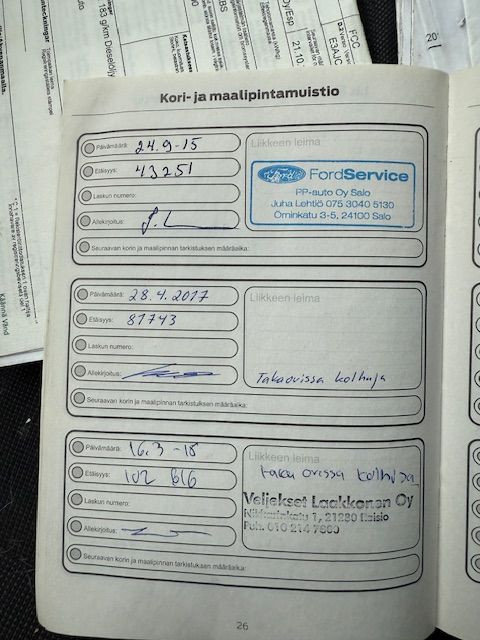 183 g/km Dieselöljy
21.10.
FCC
E3AJC
201
Käännä Vänd
Kori- ja maalipintamuistio
Päivämäärä: 24.9-15
Etäisyys: 43251
Laskun numero:
Allekirjoitus:
Liikkeen leima
Ford FordService
PP-auto Oy Salo
Juha Lehtiö 075 3040 5130
Örninkatu 3-5, 24100 Salo
Seuraavan korin ja maalipinnan tarkistuksen määräaika:
Päivämäärä: 28.4.2017
Etäisyys: 81743
Laskun numero:
Allekirjoitus:
Liikkeen leima
Takaovissa kolhuja
Seuraavan korin ja maalipinnan tarkistuksen määräaika:
Päivämäärä: 16.3-18
Etäisyys: 102 616
Laskun numero:
Allekirjoitus:
Liikkeen leima
taka ovissa kolhuja
Veljekset Laakkonen Oy
1, 21280 Raisio
Puh. 010 214 7660
Seuraavan korin ja maalipinnan tarkistuksen määräaika:
26